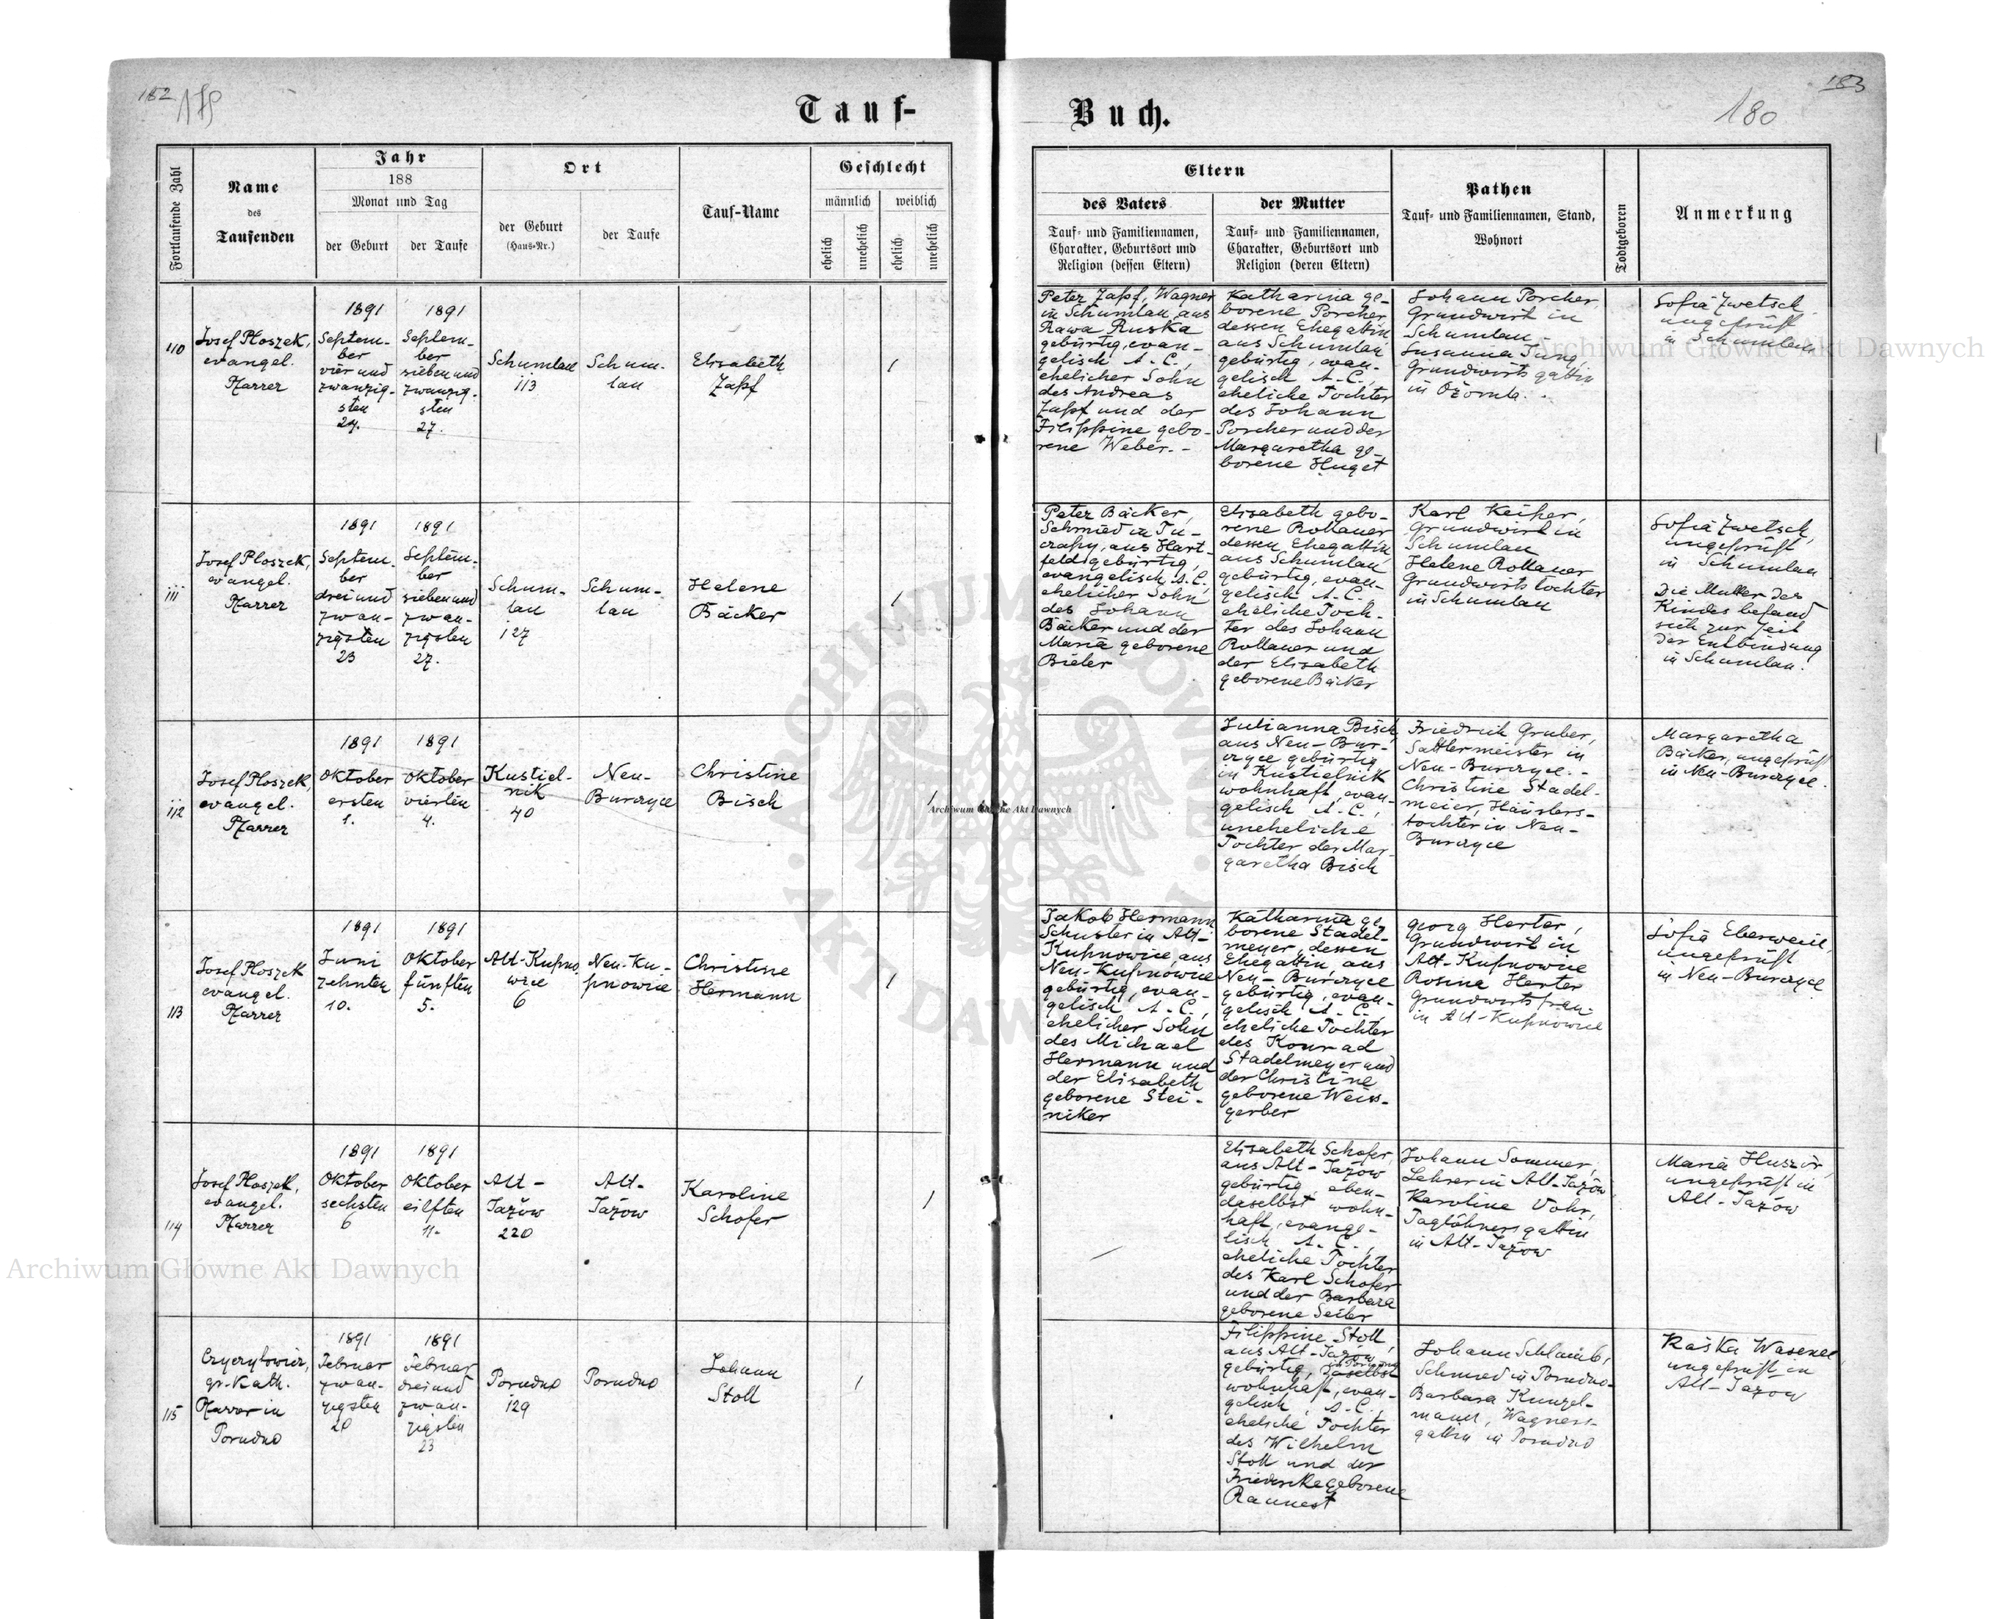 182
183
180
Tauf-
Buch.
Fortlaufende Zahl
Name
des
Taufenden
Jahr
188
Monat und Tag
der Geburt
der Taufe
Ort
der Geburt
(Haus-Nr.)
der Taufe
Tauf-Name
Geschlecht
männlich
weiblich
ehelich
unehelich
ehelich
unehelich
Eltern
des Vaters
Tauf- und Familiennamen,
Charakter, Geburtsort und
Religion (dessen Eltern)
der Mutter
Tauf- und Familiennamen,
Charakter, Geburtsort und
Religion (deren Eltern)
Pathen
Tauf- und Familiennamen, Stand,
Wohnort
Todtgeboren
Anmerkung
110
Josef Ploszek,
evangel.
Pfarrer
1891
Septem-
ber
vier und
zwanzig-
sten
24.
1891
Septem-
ber
sieben und
zwanzig-
sten
27.
Schumlau
113
Schum-
lau
Elisabeth
Zapf
1
Peter Zapf, Wagner
in Schumlau, aus
Rawa Ruska
gebürtig, evan-
gelisch A. C.,
ehelicher Sohn
des Andreas
Zapf und der
Filippine gebo-
rene Weber. -
Katharina ge-
borene Porcher
dessen Ehegattin
aus Schumlau
gebürtig, evan-
gelisch A. C.,
eheliche Tochter
des Johann
Porcher und der
Margaretha ge-
borene Huget
Johann Porcher,
Grundwirt in
Schumlau
Susanna Jung,
Grundwirtsgattin
in
Sofia Zwetsch,
ungeprüft
in Schumlau
111
Josef Ploszek,
evangel.
Pfarrer
1891
Septem-
ber
drei und
zwan-
zigsten
23
1891
Septem-
ber
sieben und
zwan-
zigsten
27.
Schum-
lau
127
Schum-
lau
Helene
Bäcker
1
Peter Bäcker,
Schmied in Tu-
czapy, aus Hart-
feld gebürtig,
evangelisch A. C.
ehelicher Sohn
des Johann
Bäcker und der
Maria geborene
Bieler
Elisabeth gebo-
rene Rollauer
dessen Ehegattin
aus Schumlau
gebürtig, evan-
gelisch A. C.
eheliche Toch-
ter des Johann
Rollauer und
der Elisabeth
geborene Bäcker
Karl Keiper,
Grundwirt in
Schumlau
Helene Rollauer
Grundwirtstochter
in Schumlau
Sofia Zwetsch,
ungeprüft
in Schumlau
Die Mutter des
Kindes befand
sich zur Zeit
der Entbindung
in Schumlau.
112
Josef Ploszek,
evangel.
Pfarrer
1891
Oktober
ersten
1.
1891
Oktober
vierten
4.
Kustiel-
nik
40
Neu-
Burczyce
Christine
Bisch
1
Julianna Bisch,
aus Neu-Bur-
czyce gebürtig
in Kustielnik
wohnhaft, evan-
gelisch A. C.,
uneheliche
Tochter der Mar-
garetha Bisch
Friedrich Gruber,
Sattlermeister in
Neu-Burczyce. -
Christine Stadel-
meier, Häuslers-
tochter in Neu-
Burczyce
Margaretha
Bäcker, ungeprüft
in Neu-Burczyce.
113
Josef Ploszek
evangel.
Pfarrer
1891
Juni
zehnten
10.
1891
Oktober
fünften
5.
Alt-Kupno-
wice
6
Neu-Ku-
pnowice
Christine
Hermann
1
Jakob Hermann
Schuster in Alt-
Kupnowice, aus
Neu-Kupnowice
gebürtig, evan-
gelisch A. C.,
ehelicher Sohn
des Michael
Hermann und
der Elisabeth
geborene Stei-
niker
Katharina ge-
borene Stadel-
meyer, dessen
Ehegattin, aus
Neu-Burczyce
gebürtig, evan-
gelisch A. C.
eheliche Tochter
des Konrad
Stadelmeyer und
der Christine
geborene Weiss-
gerber
Georg Herter,
Grundwirt in
Alt-Kupnowice
Rosina Herter
Grundwirtsfrau
in Alt-Kupnowice
Sofia Eberweil,
ungeprüft
in Neu-Burczyce
114
Josef Ploszek,
evangel.
Pfarrer
1891
Oktober
sechsten
6
1891
Oktober
eilften
11.
Alt-
Jazów
220
Alt-
Jazów
Karoline
Schofer
1
Elisabeth Schofer,
aus Alt-Jazów
gebürtig, eben-
daselbst wohn-
haft, evange-
lisch A. C.,
eheliche Tochter
des Karl Schofer
und der Barbara
geborene Seiler
Johann Sommer,
Lehrer in Alt-Jazów
Karoline Vohr,
Taglöhnersgattin
in Alt-Jazow
Maria Huszár,
ungeprüft in
Alt-Jazów
115
gr. kath.
Pfarrer in
Porudno
1891
Februar
zwan-
zigsten
20
1891
Februar
drei und
zwan-
zigsten
23
Porudno
129
Porudno
Johann
Stoll
1
Filippine Stoll,
aus Alt-Jazow
gebürtig, daselbst
wohnhaft, evan-
gelisch, A. C.,
eheliche Tochter
des Wilhelm
Stoll und der
Friederike geborene
Raunest
Johann Schlamb,
Schmied in Porudno-
Barbara Kunzel-
mann, Wagners-
gattin in Porudno
Kaśka
ungeprüft in
Alt-Jazow
Archiwum Główne Akt Dawnych
Archiwum Główne Akt Dawnych
Archiwum Główne Akt Dawnych
ARCHIWUM GŁÓWNE AKT DAWNYCH